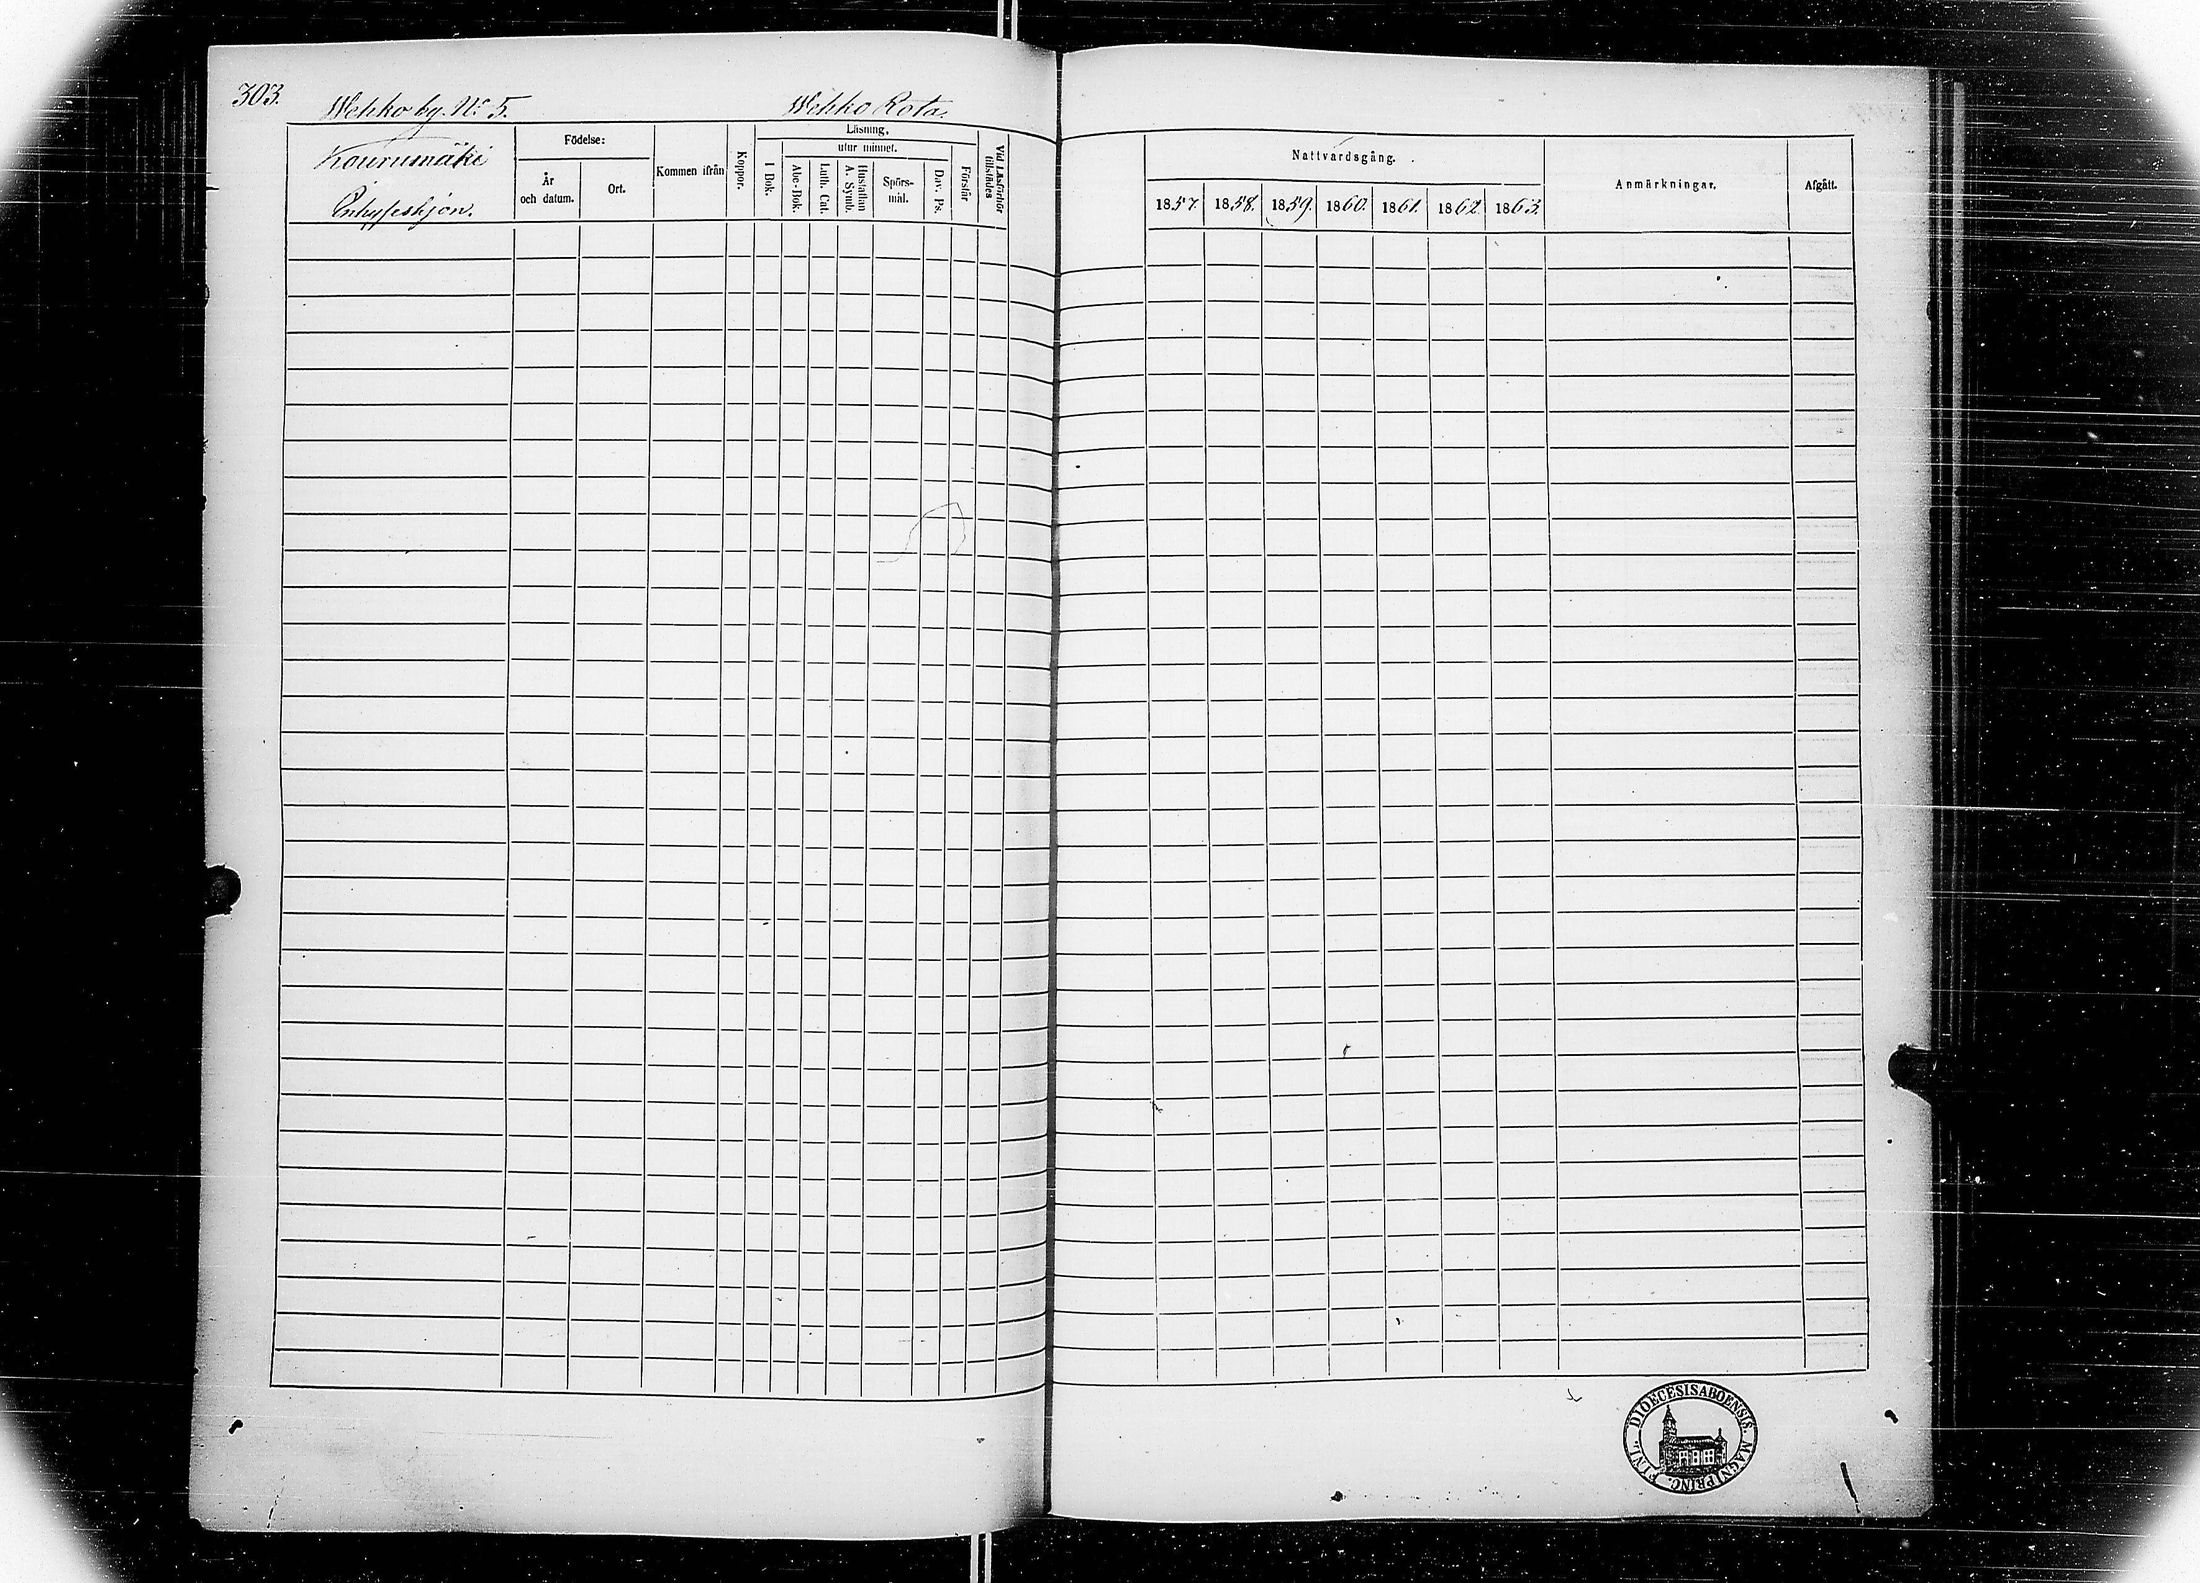 303.
Wehko by. No 5.
Wehko Rota.
Kourumäki
Inhysehjon.
Födelse:
År
och datum.
Ort.
Kommen ifrån
Koppor.
Läsning,
utur minnet.
I Bok.
Abc-Bok.
Luth. Cat.
Hustaflan
A. Symb.
Spörs-
mål.
Dav. Ps.
Förstår
Vid Läsförhör
tillstädes
Nattvardsgång.
1857.
1858.
1859.
1860.
1861.
1862.
1863.
Anmärkningar.
Afgått.
DIOECESIS ABOENSIS. MAGNI PRINC. FINL.